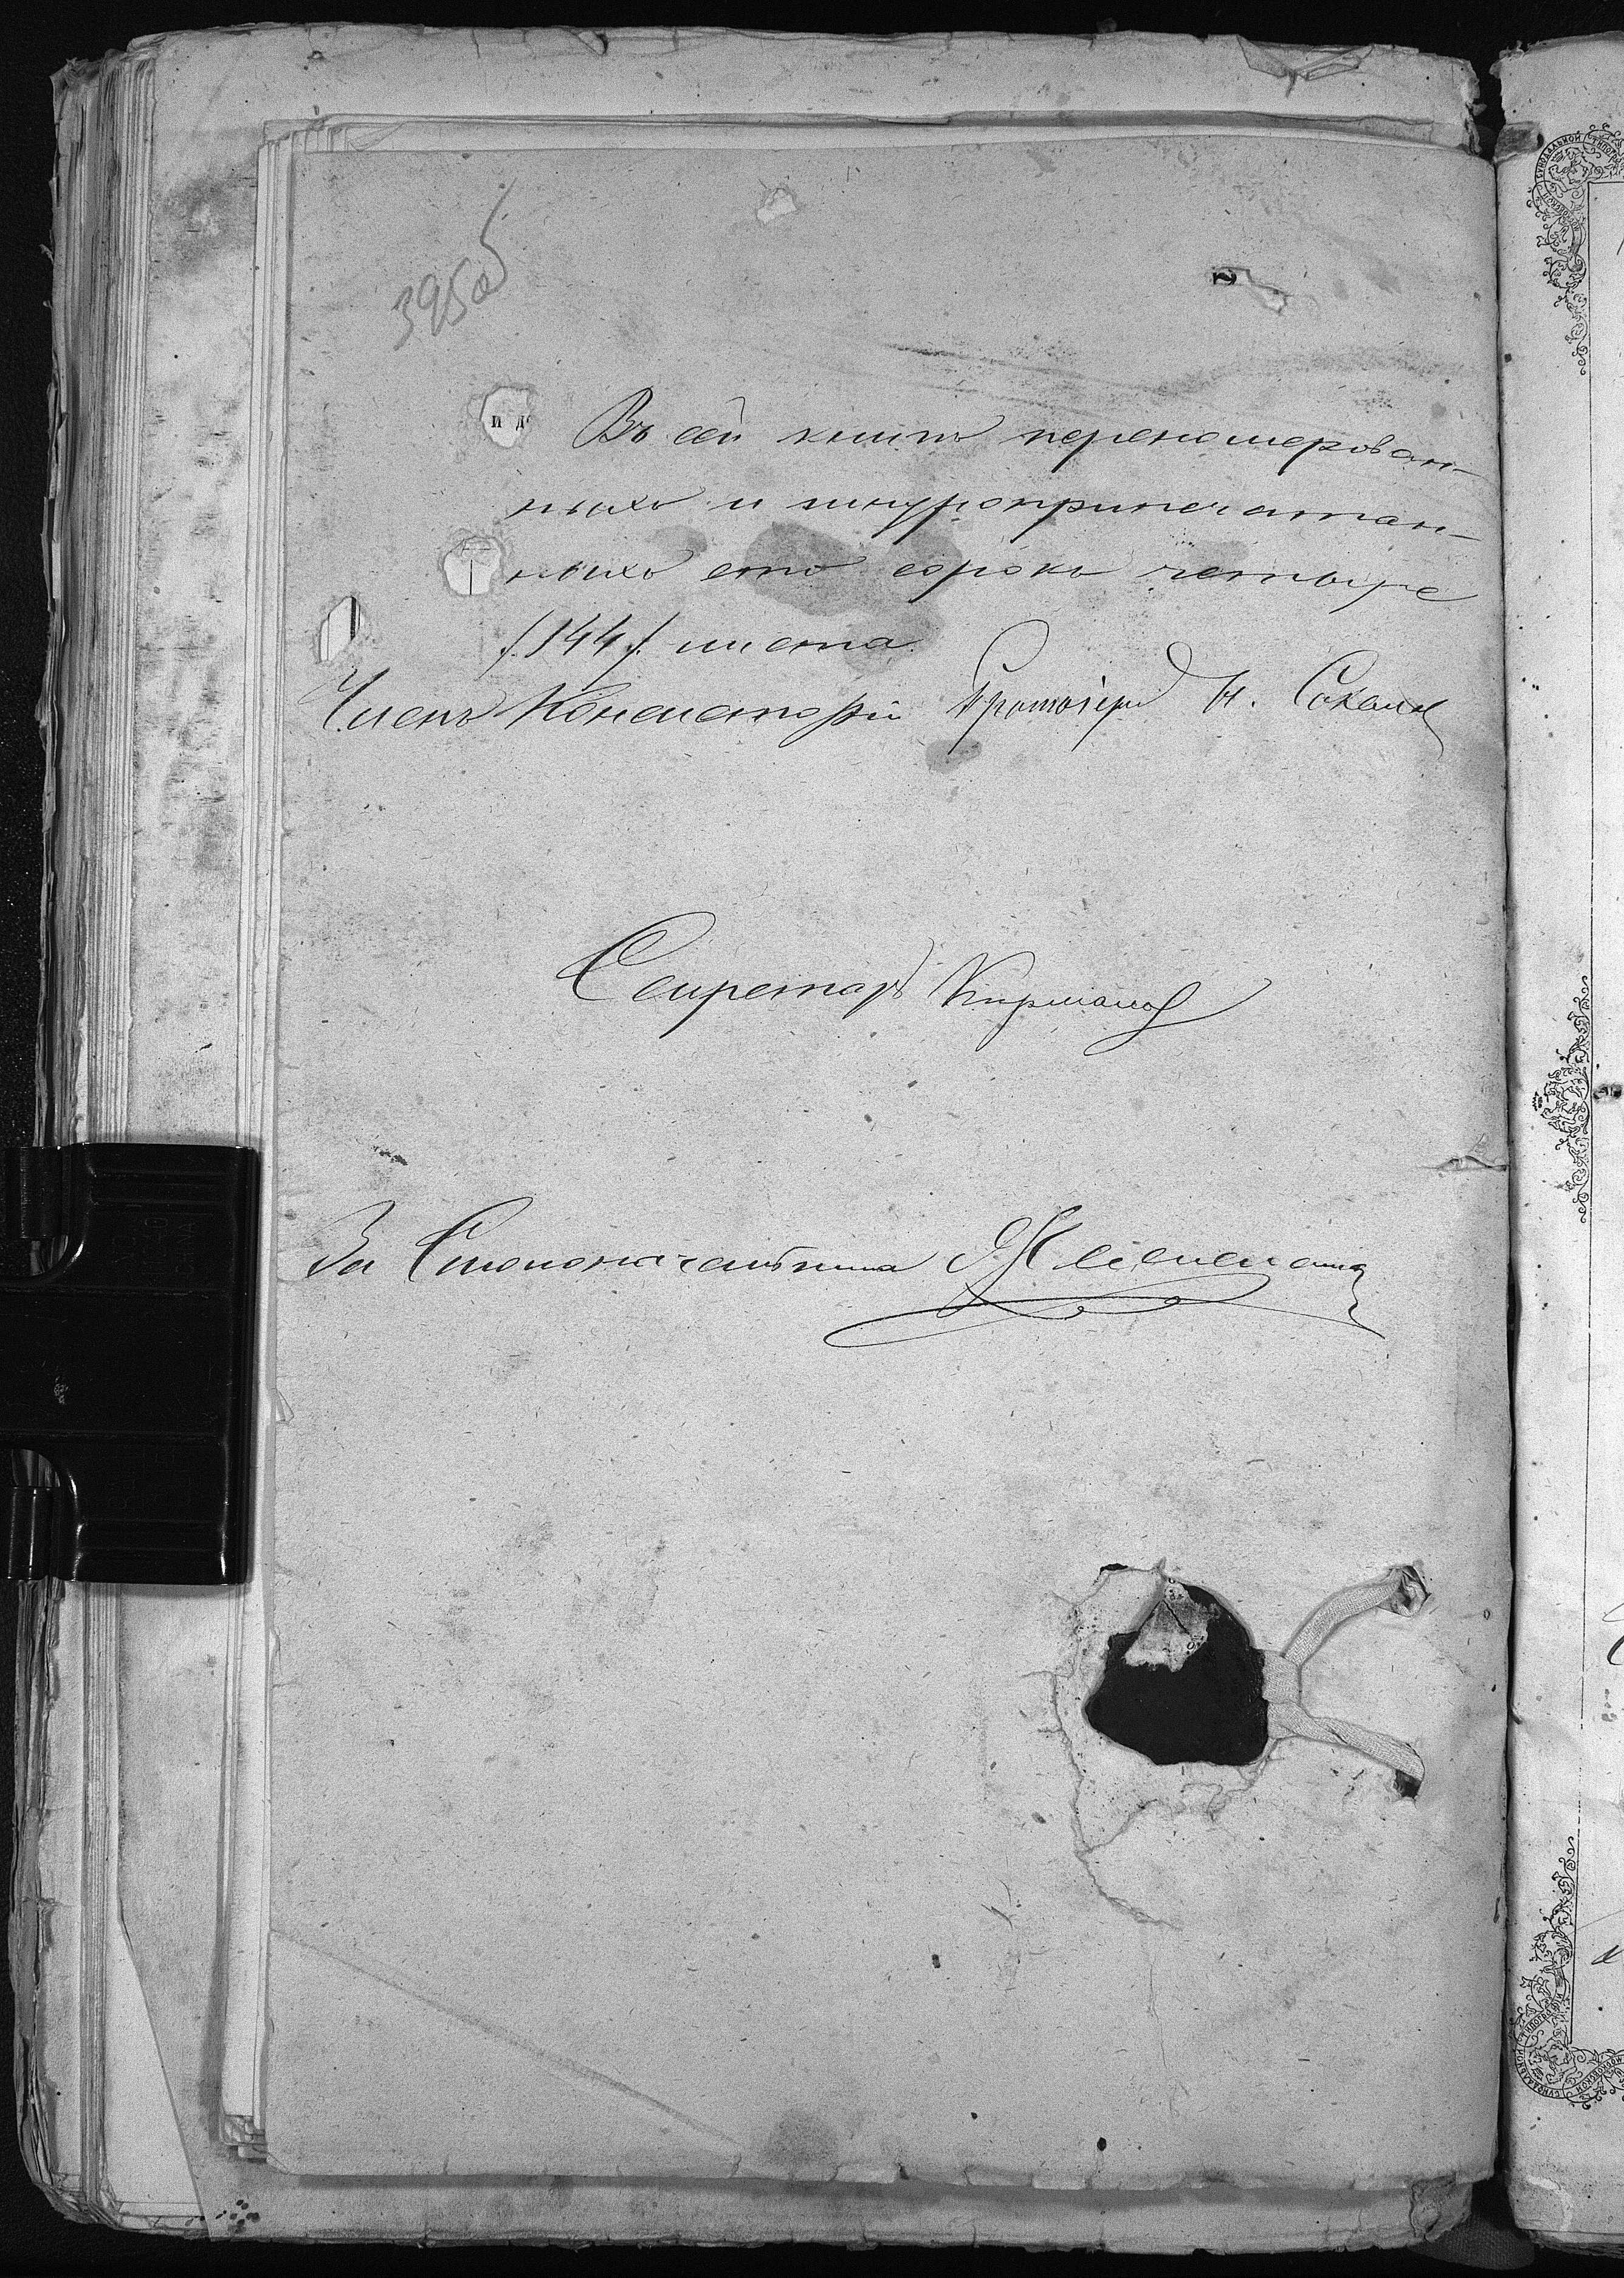 395об
и д
Въ сей книгѣ перенумерован-
ныхъ и шнуроприпечатан-
ныхъ сто сорокъ четыре
/.144/. листа.
Членъ Консисторіи Протоіерей Н.
Секретарь
За Столоначальника